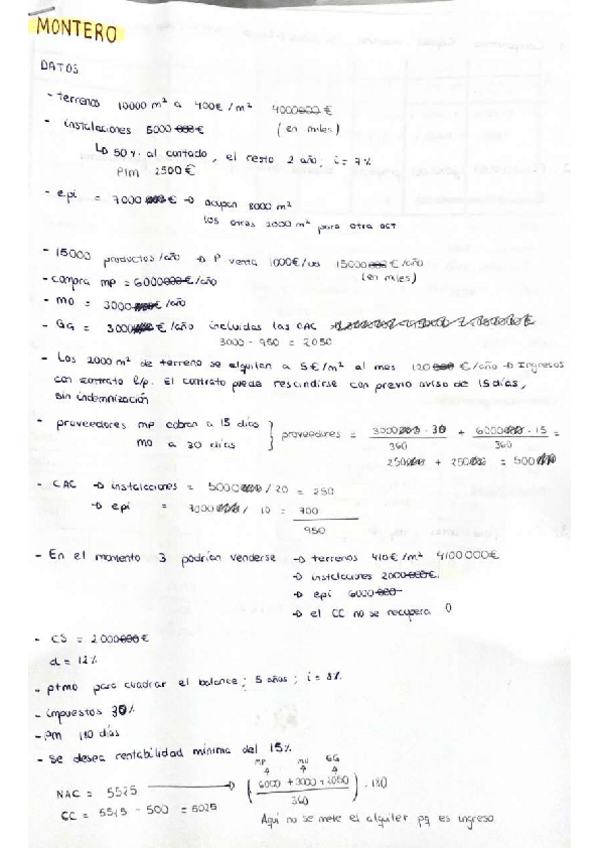 MONTERO
DATOS
- terrenos 10000 m² a 400€/m² 4000000 €
- instalaciones 5000 000 € (en miles)
↳ 50% al contado, el resto 2 año; i = 7%
P/m 2500 €
- epi = 7000 € → ocupan 8000 m²
los otros 2000 m² para otra act
- 15000 productos/año → P venta 1000€/us 15000 000 €/año
- compra mp = 6000000 €/año (en miles)
- mo = 3000 €/año
- GG = 3000 €/año incluidas las CAC
3000 - 950 = 2050
- Los 2000 m² de terreno se alquilan a 5€/m² al mes 120 000 €/año → Ingresos
con contrato l/p. El contrato puede rescindirse con previo aviso de 15 días,
sin indemnización
- proveedores mp cobran a 15 días } proveedores = 3000 · 30 / 360 + 6000 · 15 / 360 =
mo a 30 días
250 + 250 = 500
- CAC → instalaciones = 5000 / 20 = 250
→ epi = 7000 / 10 = 700
950
- En el momento 3 podrían venderse → terrenos 410€/m² 4100000€
→ instalaciones 2000000€.
→ epi 6000000
→ el CC no se recupera 0
- CS = 2000000€
d = 12%
- ptmo para cuadrar el balance; 5 años; i = 8%
- impuestos 30%
- PM 180 días
- Se desea rentabilidad mínima del 15%
MP MO GG
NAC = 5525 → (6000 + 3000 + 2050 / 360) · 180
CC = 5525 - 500 = 5025
Aquí no se mete el alquiler pq es ingreso